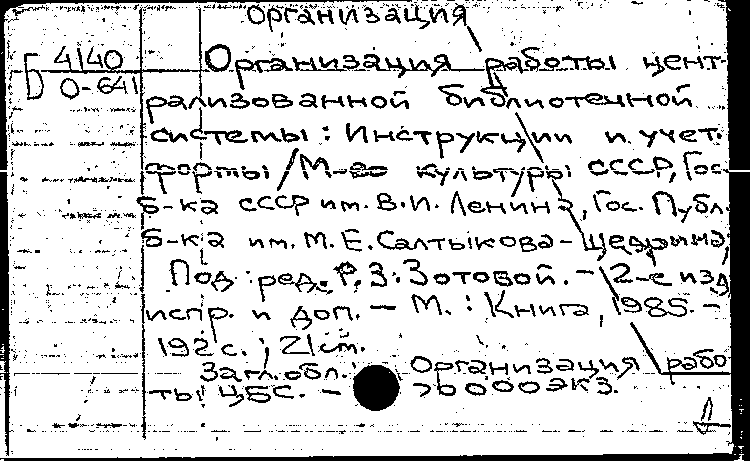 Организация
Б 4140
О-641
Организация работы цент-
рализованной библиотечной
системы: Инструкции и учет.
формы / М-во культуры СССР, Гос.
б-ка СССР им. В.И. Ленина, Гос. Публ.
б-ка им. М.Е. Салтыкова-Щедрина;
Под ред. Р.З. Зотовой. - 2-е изд.
испр. и доп. - М.: Книга, 1985. -
192 с.; 21 см.
Загл. обл.: Организация рабо
ты ЦБС. - 70000 экз.